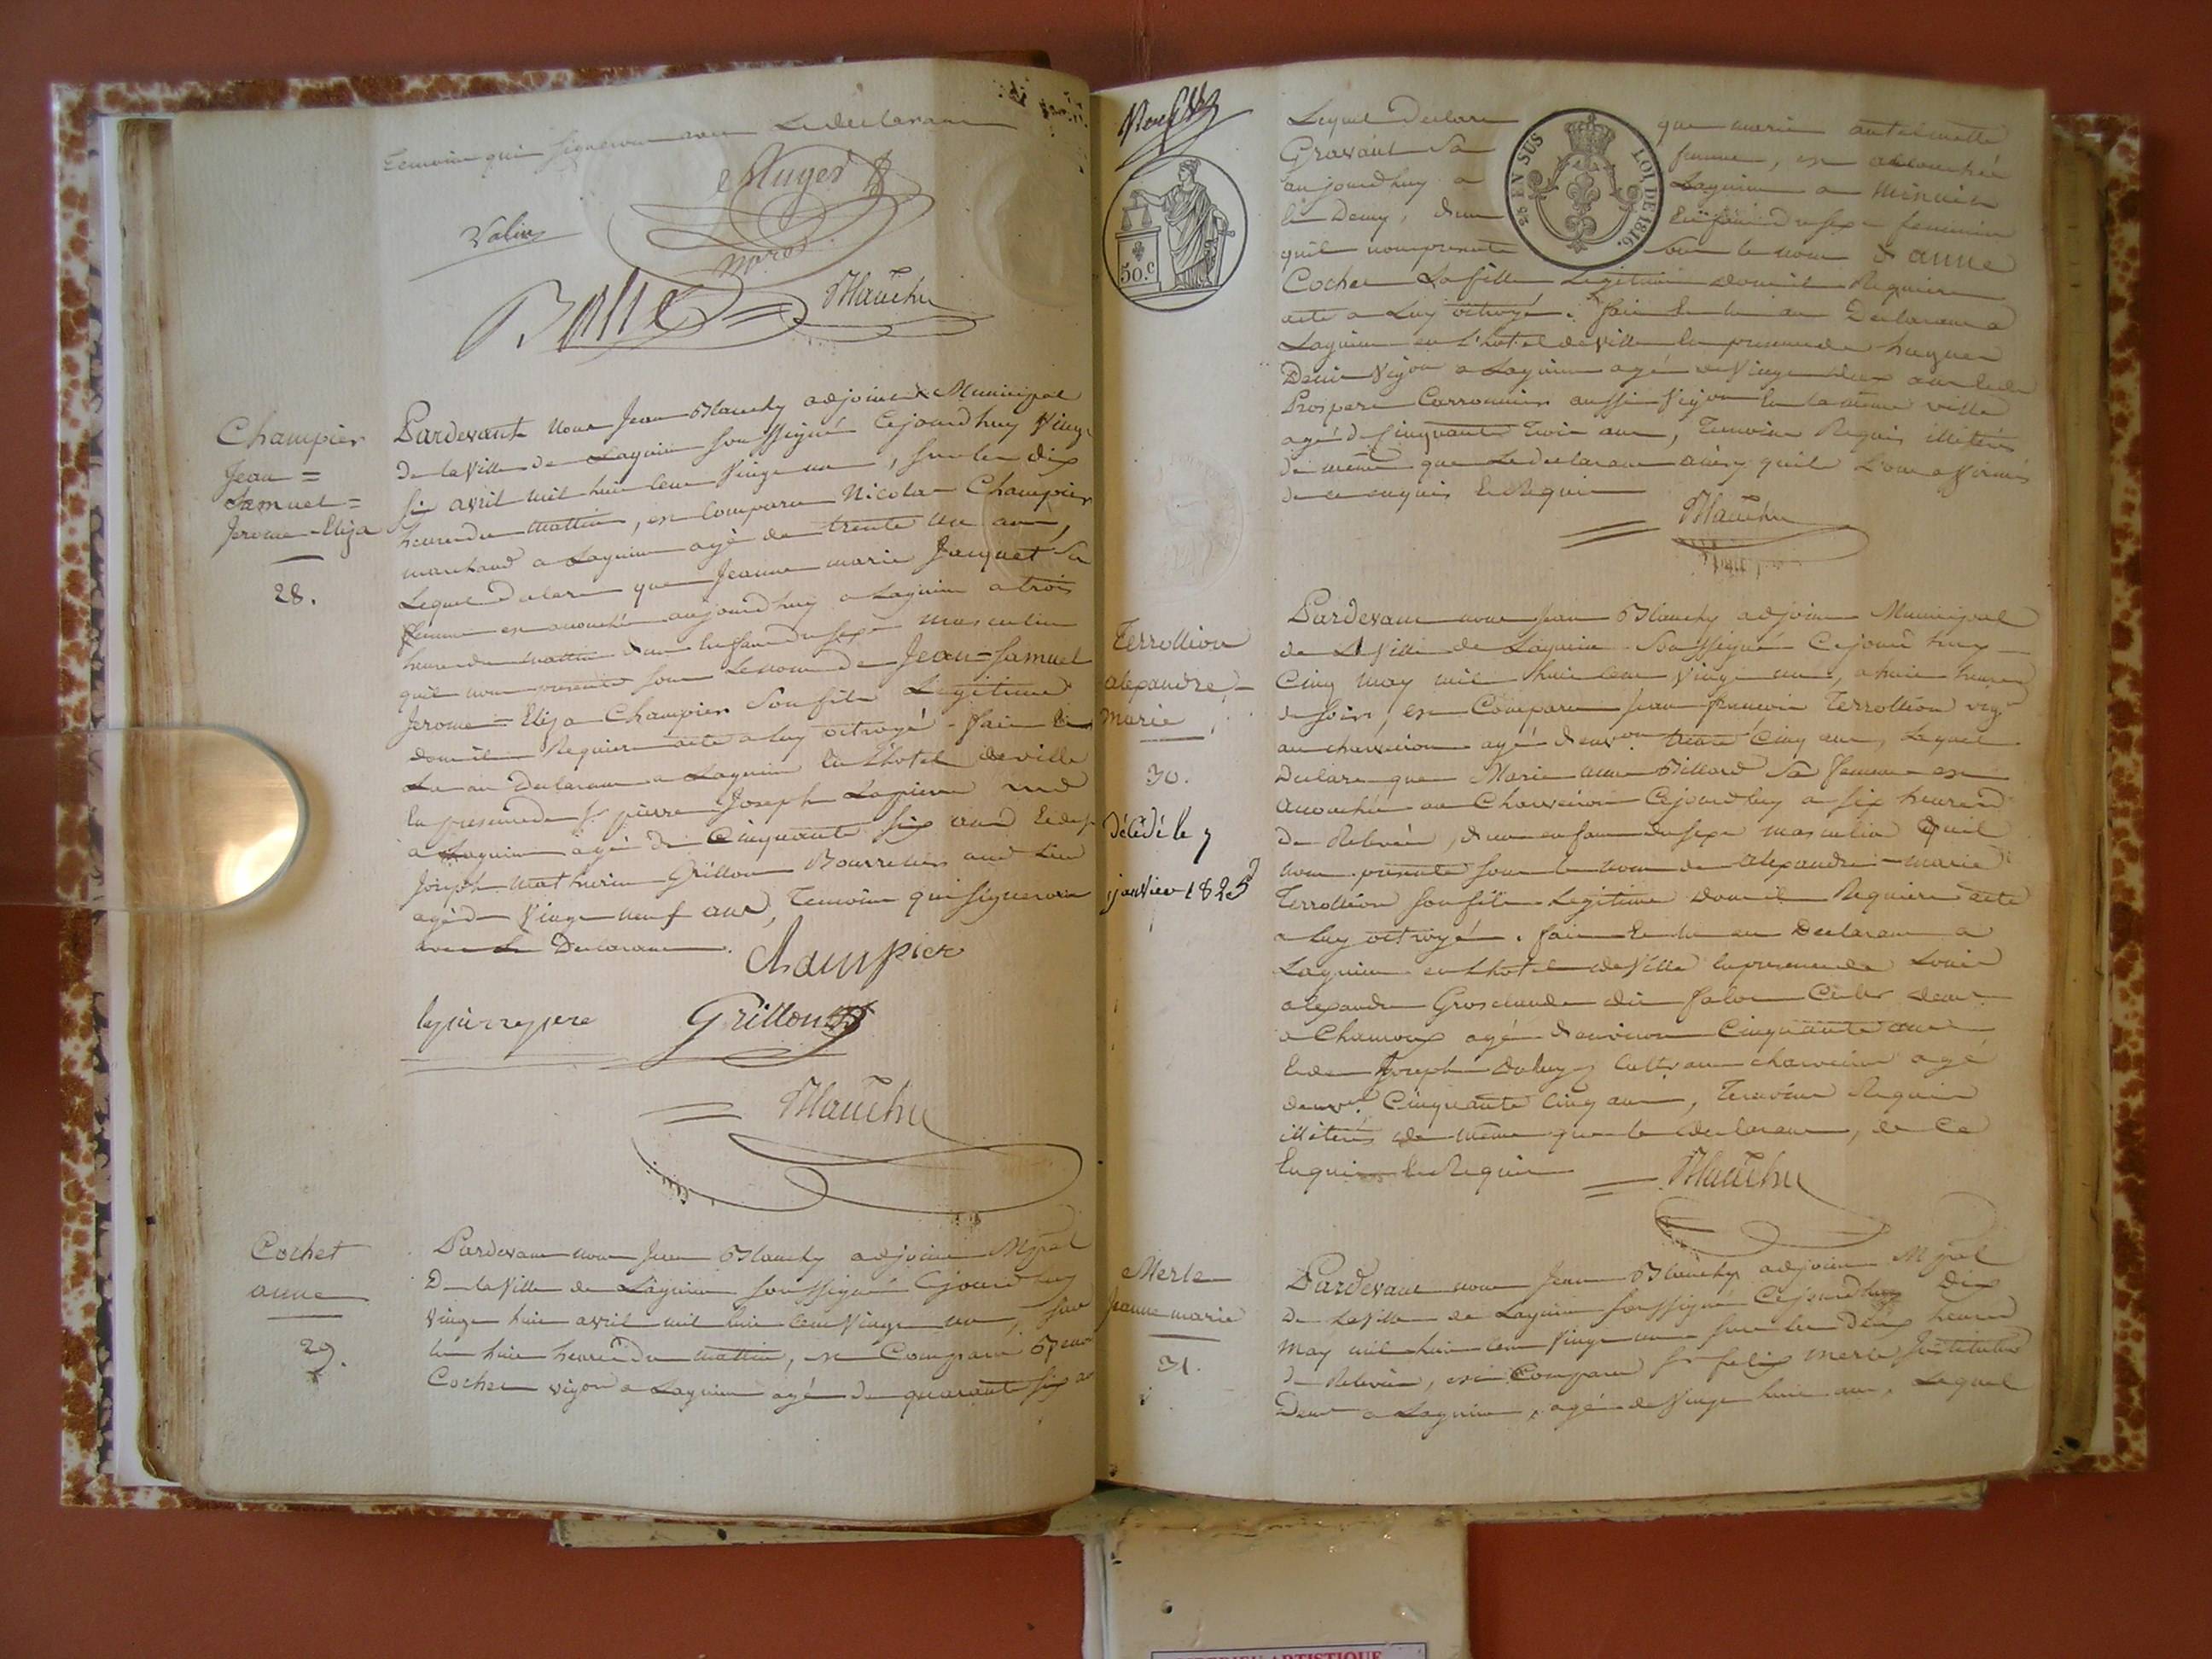 Temoins qui signeront avec Le declarant
Muyet
Valin
Mpre
Blanchy
Champier
Jean =
Samuel =
Jerome = Eliza
28.
Pardevant Nous Jean Blanchy adjoint Municipal
de la Ville de Lagnieu soussigné Cejourdhuy Vingt
six avril mil huit cent Vingt un, sur les dix
heures du mattin, est Comparu Nicolas Champier
marchand a Lagnieu agé de trente un ans,
Lequel declare que Jeanne marie Jacquet Sa
femme est accouchée aujourdhuy a Lagnieu a trois
heures du mattin d'un Enfant du sexe masculin
quil nous presente sous Le nom de Jean = Samuel
Jerome = Eliza Champier Son fils Legitime
dont il Requiert acte a luy octroyé. fait Et
Lu au Declarant a Lagnieu En L'hotel de ville
En presence de Sr pierre Joseph Lapierre md
a Lagnieu agé de Cinquante six ans Et de Sr
Joseph Mathurin Grillon Bourrelier aud. Lieu
agé de Vingt neuf ans, Temoins qui signeront
avec Le Declarant.
Champier
lapierre pere
Grillon
Blanchy
Cochet
anne
29.
Pardevant nous Jean Blanchy adjoint Mpal
De la Ville de Lagnieu soussigné Cejourdhuy
Vingt huit avril mil huit cent Vingt un, sur
les huit heures du mattin, est Comparu
Cochet vigon a Lagnieu agé de quarante six ans
50.c
25 EN SUS
LOI DE 1816.
Lequel Declare que marie antoinette
Gravant Sa femme, est accouchée
aujourdhuy a Lagnieu a Minuit
Et Demy, d'un Enfant du sexe feminin
quil nous presente Sous le nom d'anne
Cochet Sa fille Legitime dont il Requiert
acte a Luy octroyé. fait Et lu au Declarant a
Lagnieu en L'hotel de Ville En presence de hugues
Denis Vigon a Lagnieu agé de Vingt deux ans Et de
Prosper Carronnier aussi Vigon En la meme ville
agé de Cinquante Trois ans, Temoins Requis illiterés
de meme que Le declarant ainsy quil L'ont affirmés
de ce enquis Et Requis
Blanchy
Terrollion
alexandre =
marie
30.
Décédé le 7
janvier 1825
Pardevant nous Jean Blanchy adjoint Municipal
de La Ville de Lagnieu Soussigné Cejourdhuy
Cinq May mil huit cent Vingt un, a huit heures
du soir, est Comparu Jean francois Terrollion vigon
au charveiron agé d'envon trente Cinq ans, Lequel
Declare que Marie anne Billiard Sa femme est
accouchée au Charveiron Cejourdhuy a six heures
De Relevée, d'un enfant du sexe masculin quil
nous presente sous le nom de alexandre = marie
Terrollion son fils Legitime dont il Requiert acte
a luy octroyé. fait Et lu au Declarant a
Lagnieu en Lhotel de Ville En presence de Louis
alexandre Grosclaude dit cultr demt
a Chamoux agé d'environ Cinquante ans
Et de Joseph cultr au charveiron agé
d'envon Cinquante Cinq ans, Temoins Requis
illiterés de meme que le declarant, de Ce
Enquis Et Requis
Blanchy
Merle
Jeanne marie
31.
Pardevant nous Jean Blanchy adjoint Mpal
De la Ville de Lagnieu soussigné Cejourdhuy Dix
May mil huit cent Vingt un sur les Deux heures
De Relevée, est Comparu Sr felix Merle Instituteur
Demt a Lagnieu, agé de Vingt huit ans, Lequel